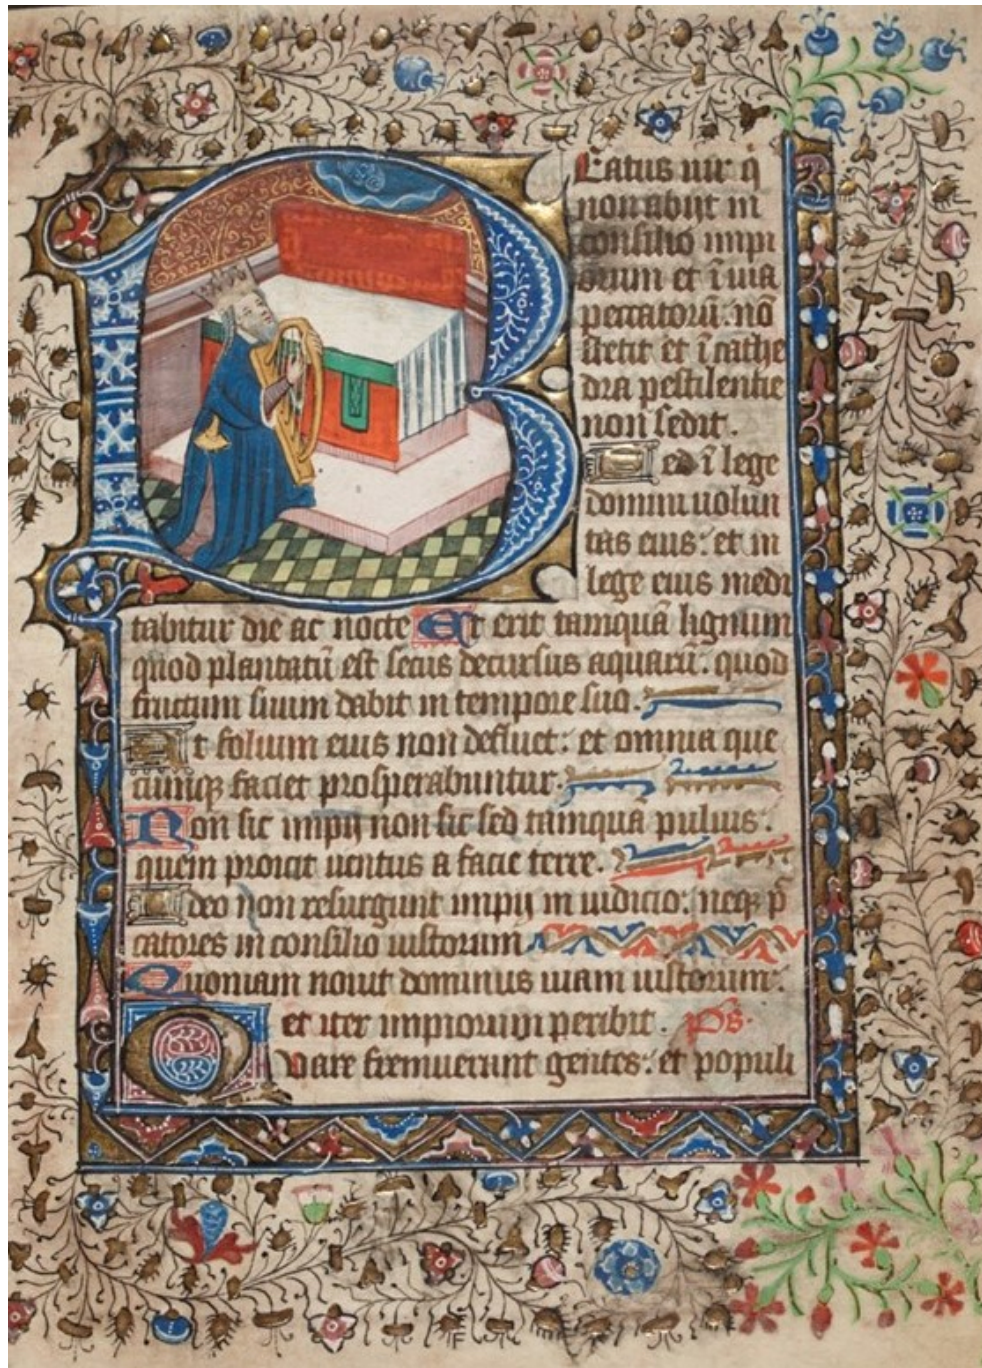 Beatus uir q̄
non abijt in
consilio impi
orum et ī uia
peccatorū. nō
stetit et ī cathe
dra pestilentie
non sedit.
Sed ī lege
domini uolun
tas eius: et in
lege eius medi
tabitur die ac nocte Et erit tamquā lignum
quod plantatū est secus decursus aquarū. quod
fructum suum dabit in tempore suo.
Et folium eius non defluet: et omnia que
cunqꝫ faciet prosperabuntur.
Non sic impij non sic sed tamquā puluis:
quem proicit uentus a facie terre.
Ideo non resurgunt impij in iudicio: neqꝫ p̄
catores in consilio iustorum
Quoniam nouit dominus uiam iustorum:
et iter impiorum peribit. Ps.
Quare fremuerunt gentes: et populi